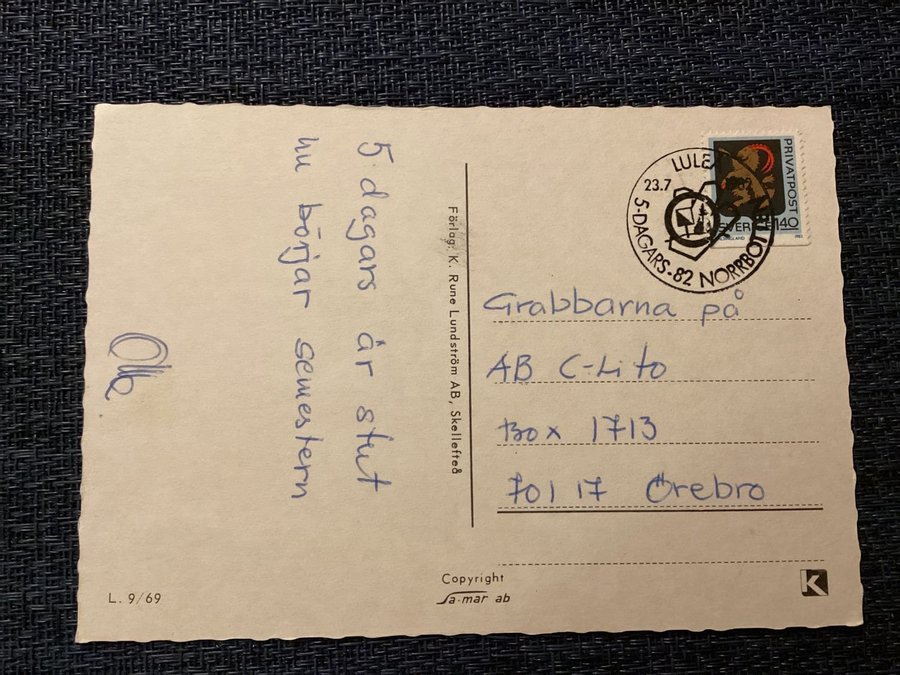 5 dagars är slut
nu börjar semestern
Olle
Förlag: K. Rune Lundström AB, Skellefteå
LULEÅ
23.7
5-DAGARS-82 NORRBOTTEN
PRIVATPOST
SVERIGE 140
Grabbarna på
AB C-Lito
Box 1713
701 17 Örebro
L. 9/69
Copyright
Sa-mar ab
K